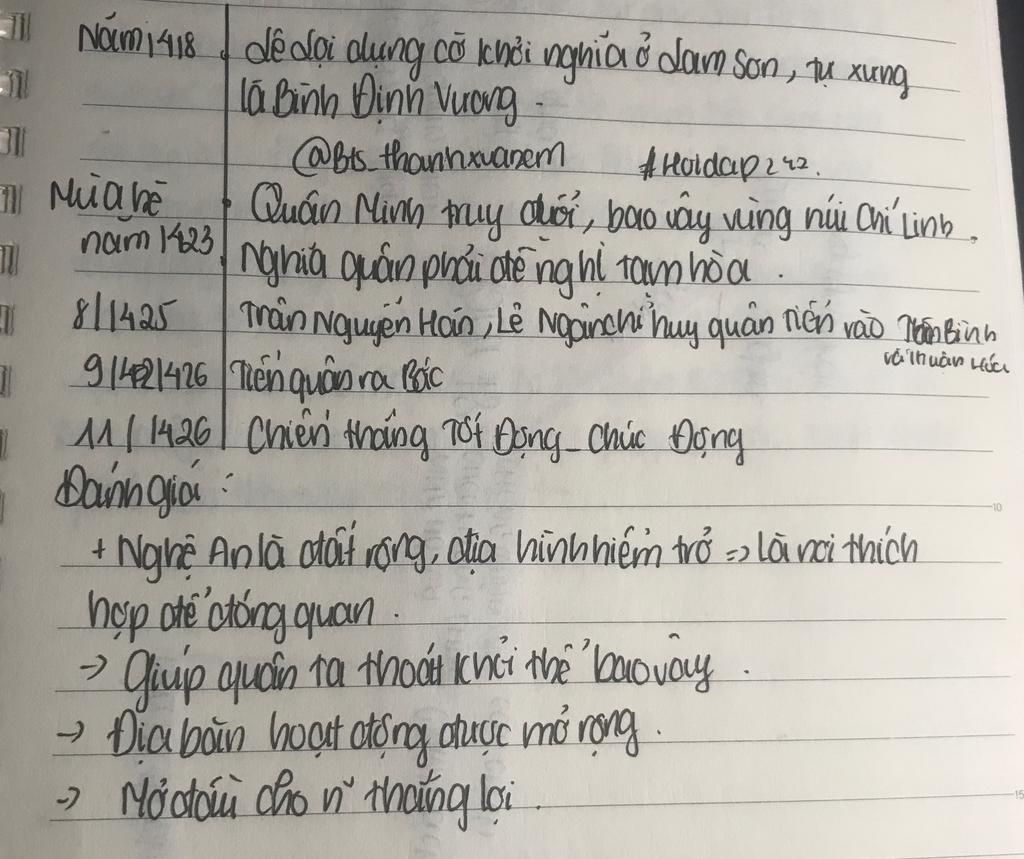 Năm 1418 Lê Lợi dựng cờ khởi nghĩa ở Lam Sơn, tự xưng
là Bình Định Vương.
@Bts_thanhxuanem #Hoidap242.
Mùa hè Quân Minh truy đuổi, bao vây vùng núi Chí Linh.
năm 1423 Nghĩa quân phải đề nghị tạm hòa.
8/1425 Trần Nguyên Hãn, Lê Ngân chỉ huy quân tiến vào Tân Bình
và Thuận Hóa
9/1426 Tiến quân ra Bắc
11/1426 Chiến thắng Tốt Động - Chúc Động
Đánh giá:
+ Nghệ An là đất rộng, địa hình hiểm trở => là nơi thích
hợp để đóng quan.
-> Giúp quân ta thoát khỏi thế bao vây.
-> Địa bàn hoạt động được mở rộng.
-> Mở đầu cho n~ thắng lợi.
10
15